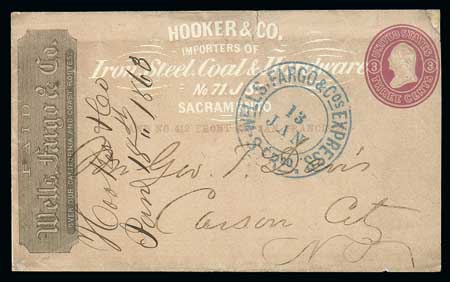 HOOKER & CO.
IMPORTERS OF
Iron Steel, Coal & Hardware
No 71 J St
SACRAMENTO
No 412 FRONT ST. SAN FRANCISCO
UNITED STATES
3 3
THREE CENTS
PAID
Wells, Fargo & Co.
OVER OUR CALIFORNIA AND COAST ROUTES.
WELLS, FARGO & COs EXPRESS
13
JAN
Hooker & Co
Jan 13th 1868
Mr. Geo. T. Davis
Carson City
N